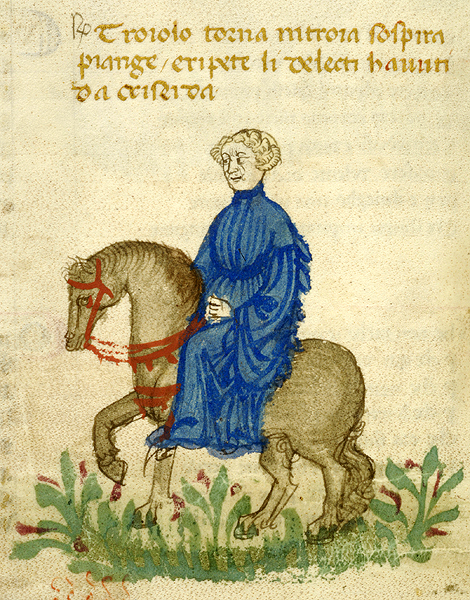 Troiolo torna introia sospira
piange / eripete li delecti havuti
da criseida